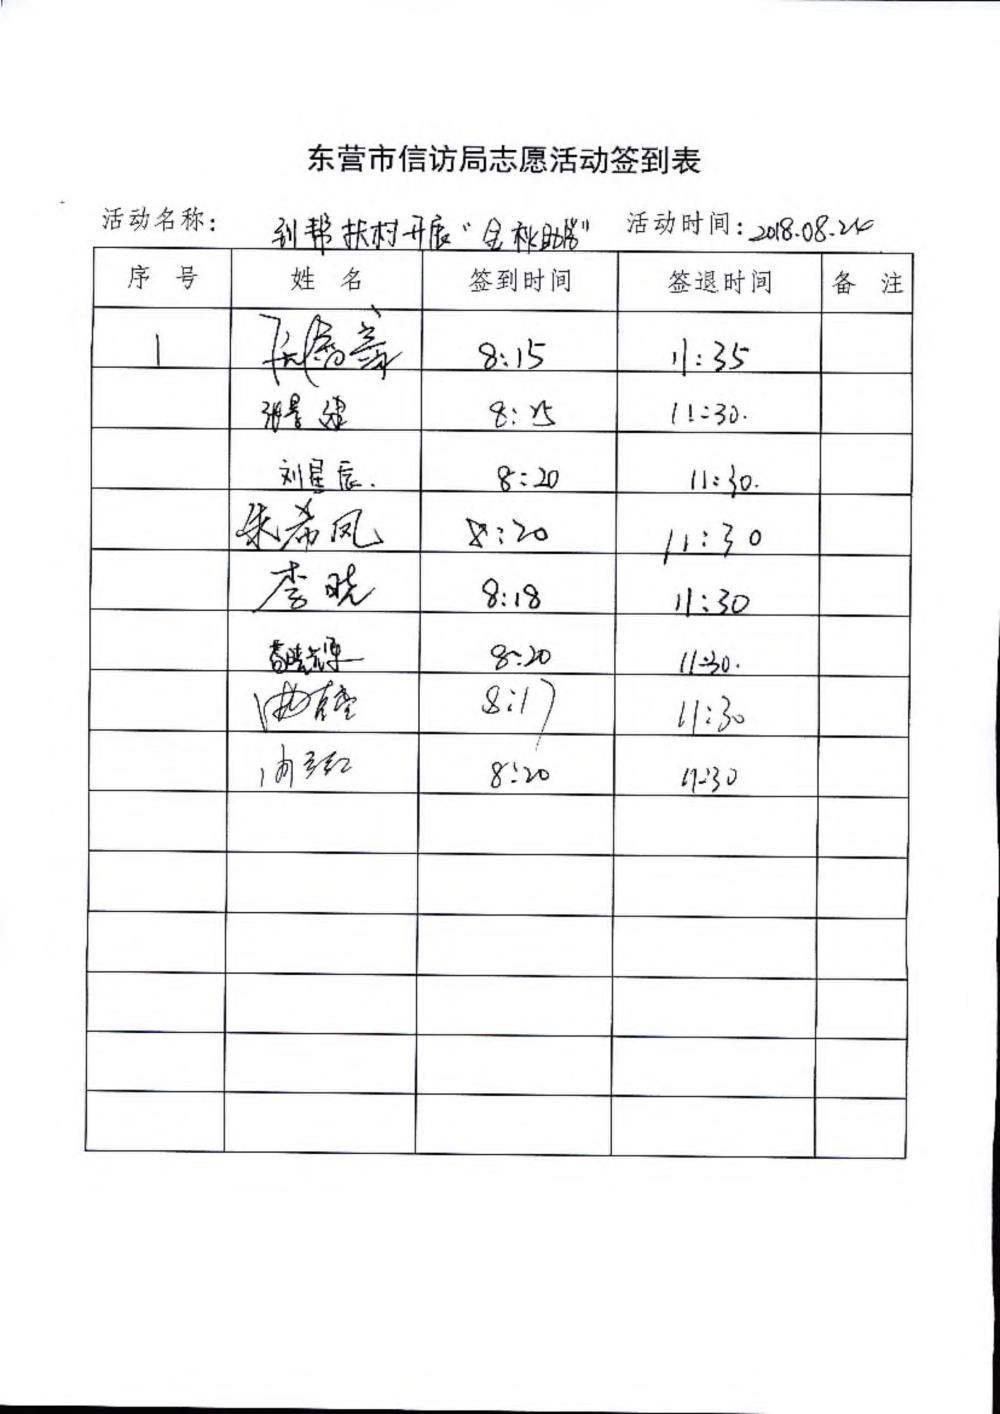 东营市信访局志愿活动签到表
活动名称： 到帮扶村开展“金秋助学” 活动时间：2018.08.24
序号 姓名 签到时间 签退时间 备注
1 8:15 11:35
张景建 8:25 11:30.
刘星辰. 8:20 11:30.
朱希凤 8:20 11:30
李晓 8:18 11:30
8:20 11:30.
曲 8:17 11:30
8:20 11:30